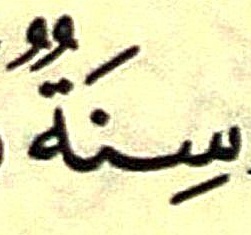 سِنَةٌ